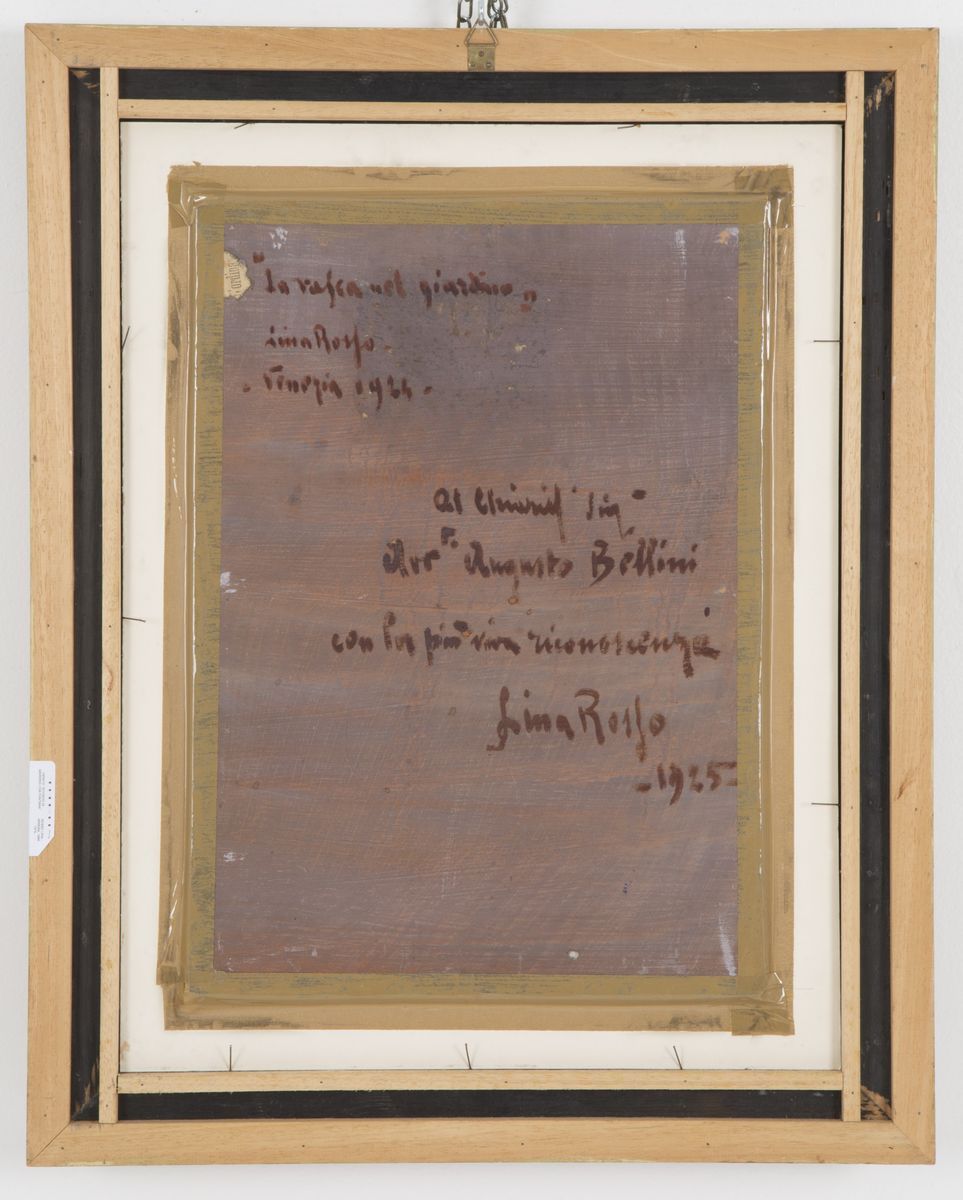 "La vasca nel giardino"
Lina Rosso -
- Venezia 1924 -
Al Chiariss Sig
Avv Augusto Bellini
con la più viva riconoscenza
Lina Rosso
- 1925 -